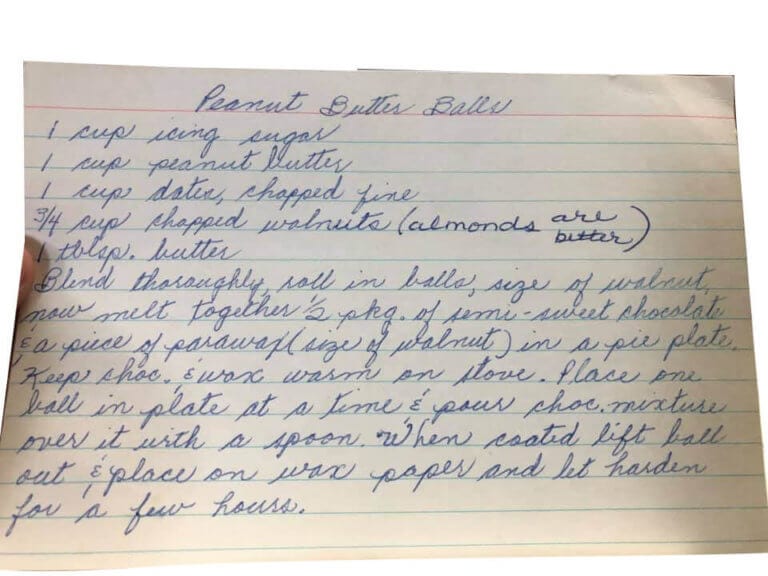 Peanut Butter Balls
1 cup icing sugar
1 cup peanut butter
1 cup dates, chopped fine
3/4 cup chopped walnuts (almonds are better)
1 tblsp. butter
Blend thoroughly, roll in balls, size of walnut,
now melt together 1/2 pkg. of semi-sweet chocolate
& a piece of parawax (size of walnut) in a pie plate.
Keep choc. & wax warm on stove. Place one
ball in plate at a time & pour choc. mixture
over it with a spoon. When coated lift ball
out & place on wax paper and let harden
for a few hours.